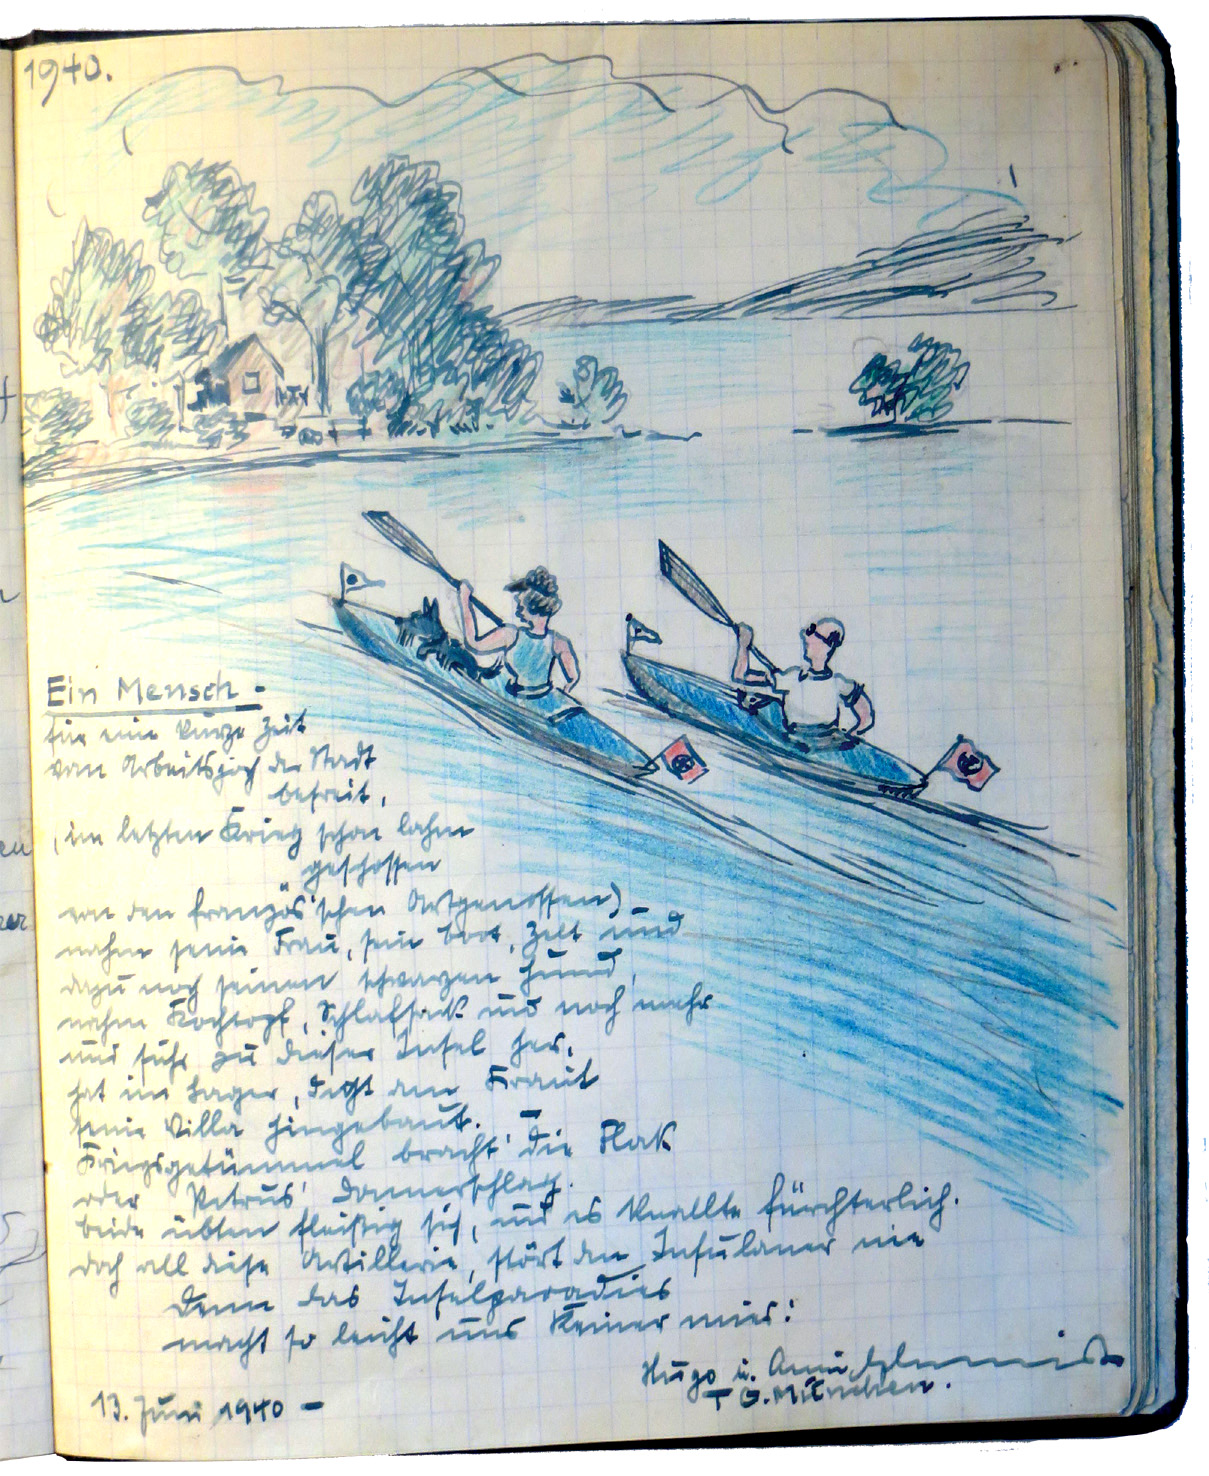 1940.
Ein Mensch -
für eine kurze Zeit
vom Arbeitsjoch der Stadt
befreit,
(im letzten Krieg schon lahm
geschossen
von den französ'schen Artgenossen)
nahm seine Frau, sein Boot, Zelt und
dazu noch seinen schwarzen Hund,
nahm Kochtopf, Schlafsack und noch mehr
und fuhr zu dieser Insel her,
hat im Lager, dicht am Kraut
seine Villa hingebaut. -
Kriegsgetümmel bracht' die Flak
oder Petrus' Donnerschlag.
beide übten fleißig sich, und es knallte fürchterlich.
doch all diese Artillerie, stört den Insulaner nie
Denn das Inselparadies
macht so leicht uns Keiner mies!
Hugo u. Anni
T G. München.
13. Juni 1940 -